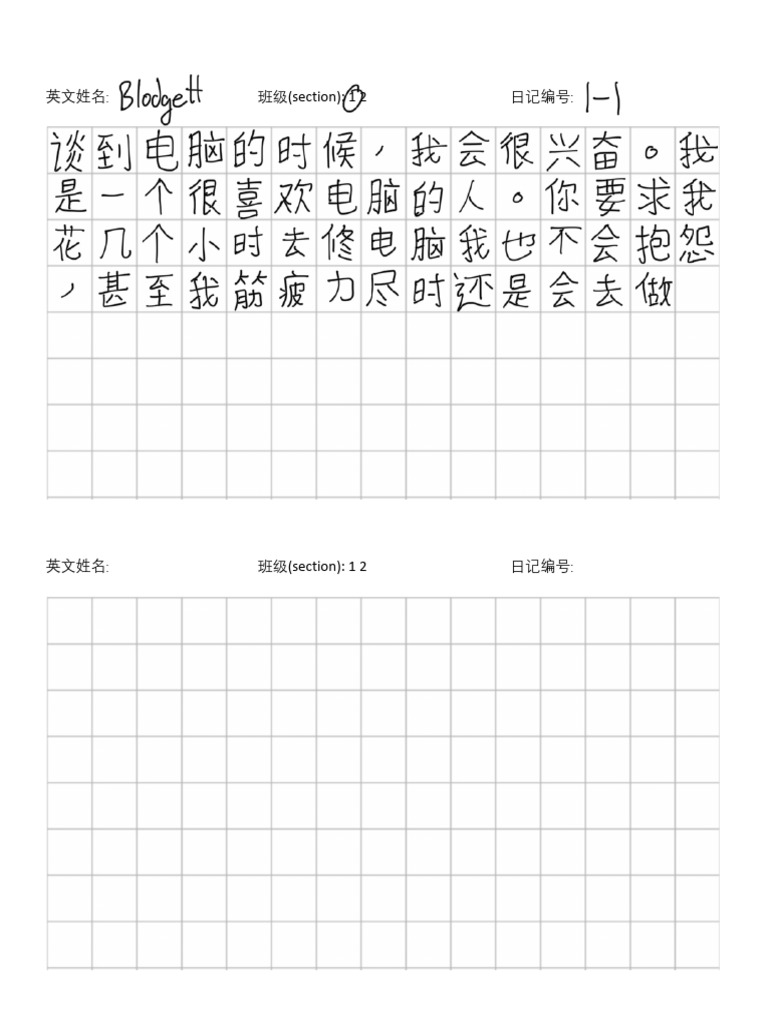 英文姓名: Blodgett 班级(section): 1 2 日记编号: 1-1
谈到电脑的时候，我会很兴奋。我
是一个很喜欢电脑的人。你要求我
花几个小时去修电脑我也不会抱怨
，甚至我筋疲力尽时还是会去做
英文姓名: 班级(section): 1 2 日记编号: